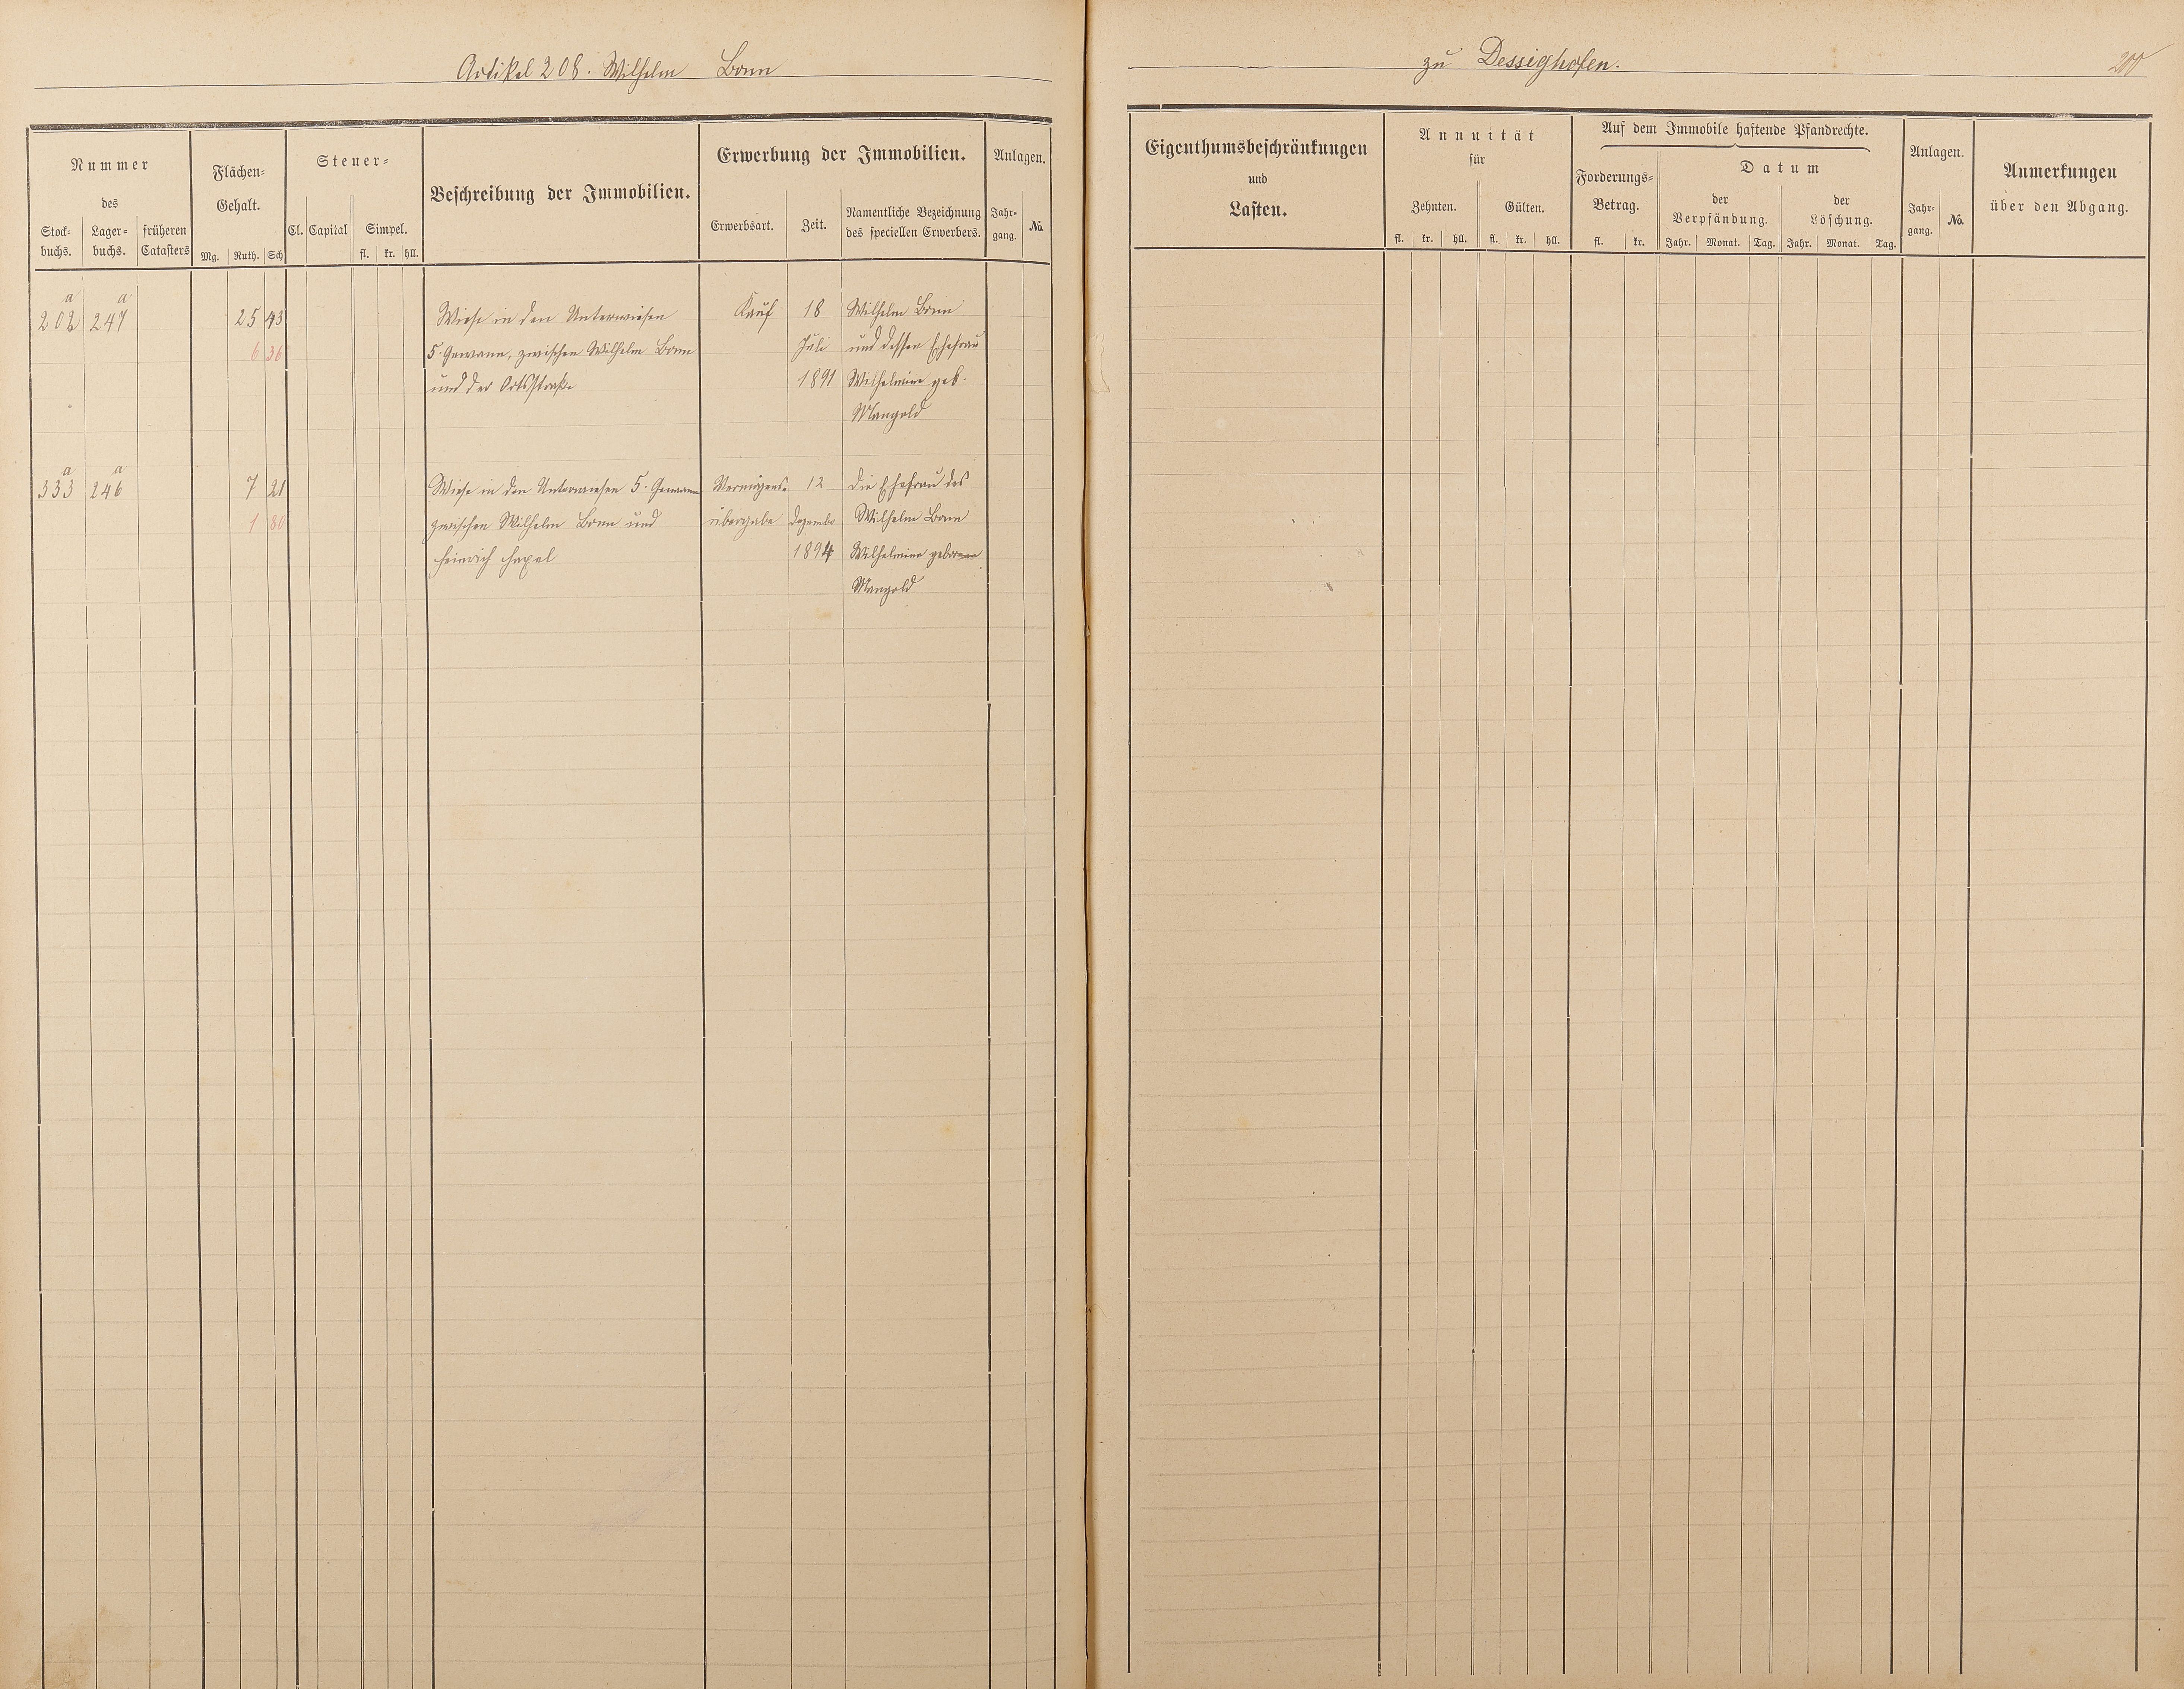 Artikel 208. Wilhelm Bonn
zu Dessighofen.
200
Nummer
des
Stock-
buchs.
Lager-
buchs.
früheren
Catasters
Flächen-
Gehalt.
Mg. Ruth. Sch
Steuer-
Cl. Capital Simpel.
fl. kr. hll.
Beschreibung der Immobilien.
Erwerbung der Immobilien.
Erwerbsart. Zeit.
Namentliche Bezeichnung
des speciellen Erwerbers.
Anlagen.
Jahr-
gang.
No.
Eigenthumsbeschränkungen
und
Lasten.
Annuität
für
Zehnten. Gülten.
fl. kr. hll. fl. kr. hll.
Auf dem Immobile haftende Pfandrechte.
Forderungs-
Betrag.
fl. kr.
Datum
der
Verpfändung.
der
Löschung.
Jahr. Monat. Tag. Jahr. Monat. Tag.
Anlagen.
Jahr-
gang.
No.
Anmerkungen
über den Abgang.
a a
202 247 25 43 Wiese in den Unterwiesen Kauf 18 Wilhelm Bonn
6 36 5. Gewann, zwischen Wilhelm Bonn Juli und dessen Ehefrau
und der Ortsstraße 1891 Wilhelmine geb.
Mangold
a a
333 246 7 21 Wiese in den Unterwiesen 5. Gewann Vermögens- 12 die Ehefrau des
1 80 zwischen Wilhelm Bonn und übergabe Dezembr Wilhelm Bonn
Heinrich 1894 Wilhelmine geborene
Mangold